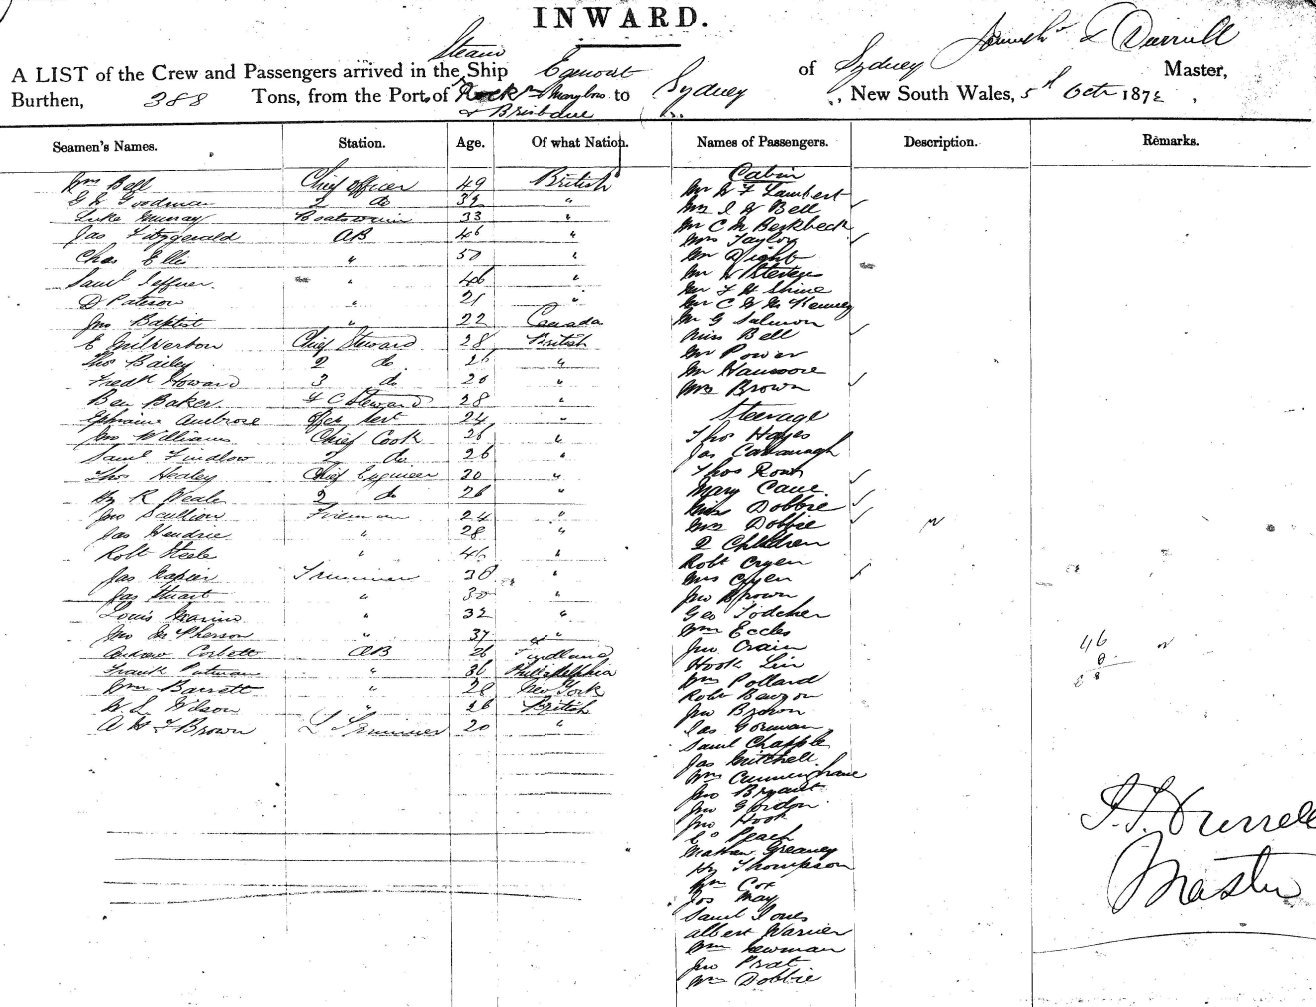 INWARD.
A LIST of the Crew and Passengers arrived in the Steam Ship Egmont of Sydney Durrell Master,
Burthen, 388 Tons, from the Port of Rockn Marybro & Brisbane to Sydney, New South Wales, 5th Octr 187
Seamen's Names. Station. Age. Of what Nation. Names of Passengers. Description. Remarks.
Cabin
Wm Bell Chief Officer 49 British Mr W F Lambert
G W Goodman 2 do 32 " Mrs J W Bell
Luke Murray Boatswain 33 " Mr C M Beckbeck
Jas Fitzgerald AB 46 " Mrs Taylor
Chas Ellis " 50 " Mr Dight
Saml " 46 " Mr W Stevens
D Paterson " 21 " Mr F H Shine
Jno Baptist " 22 Canada Mr C W G Kenney
E Milverton Chief Steward 28 British Mr G Salmon
Thos Bailey 2 do 26 " Miss Bell
Fredk Howard 3 do 20 " Mr Power
Ben Baker F C Steward 28 " Mr Hanmore
Ephraim Ambrose 24 " Mrs Brown
Steerage
Jno Williams Chief Cook 26 " Thos Hayes
Saml Findlow 2 do 26 " Jas Cavanagh
Thos Healey Chief Engineer 20 " Thos Rowh
Hy R Weale 2 do 26 " Mary Cane
Jno Scullion Fireman 24 " Miss Dobbie
Jas Hendrie " 28 " Mrs Dobbie
2 Children
Robt Steele " 46 " Robt Cryen
Jas Napier Trimmer 38 " Mrs Cryen
Jas Stuart " 30 " Jno Brown
Louis Marino " 32 " Geo Todcher
Jno McPherson " 37 " Wm Eccles
Andrew Corbett AB 26 Findland Jno Crain
Frank Putman " 36 Philidelphia Hook Lin
Wm Barrett " 28 New York Wm Pollard
W L Wilson " 26 British Robt Bawson
A W F Brown L Trimmer 20 " Jno Brown
Jas Gorman
Saml Chapple
Jas Mitchell
Wm Cunninghame
Jno Bryant
Jno Gordon
Jno Hook
Peach
Greaney
Hy Thompson
Wm Cox
Jos May
Saml Jones
Albert Warner
Wm Newman
Jno Prat
Wm Dobbie
46
8
Durrell
Master